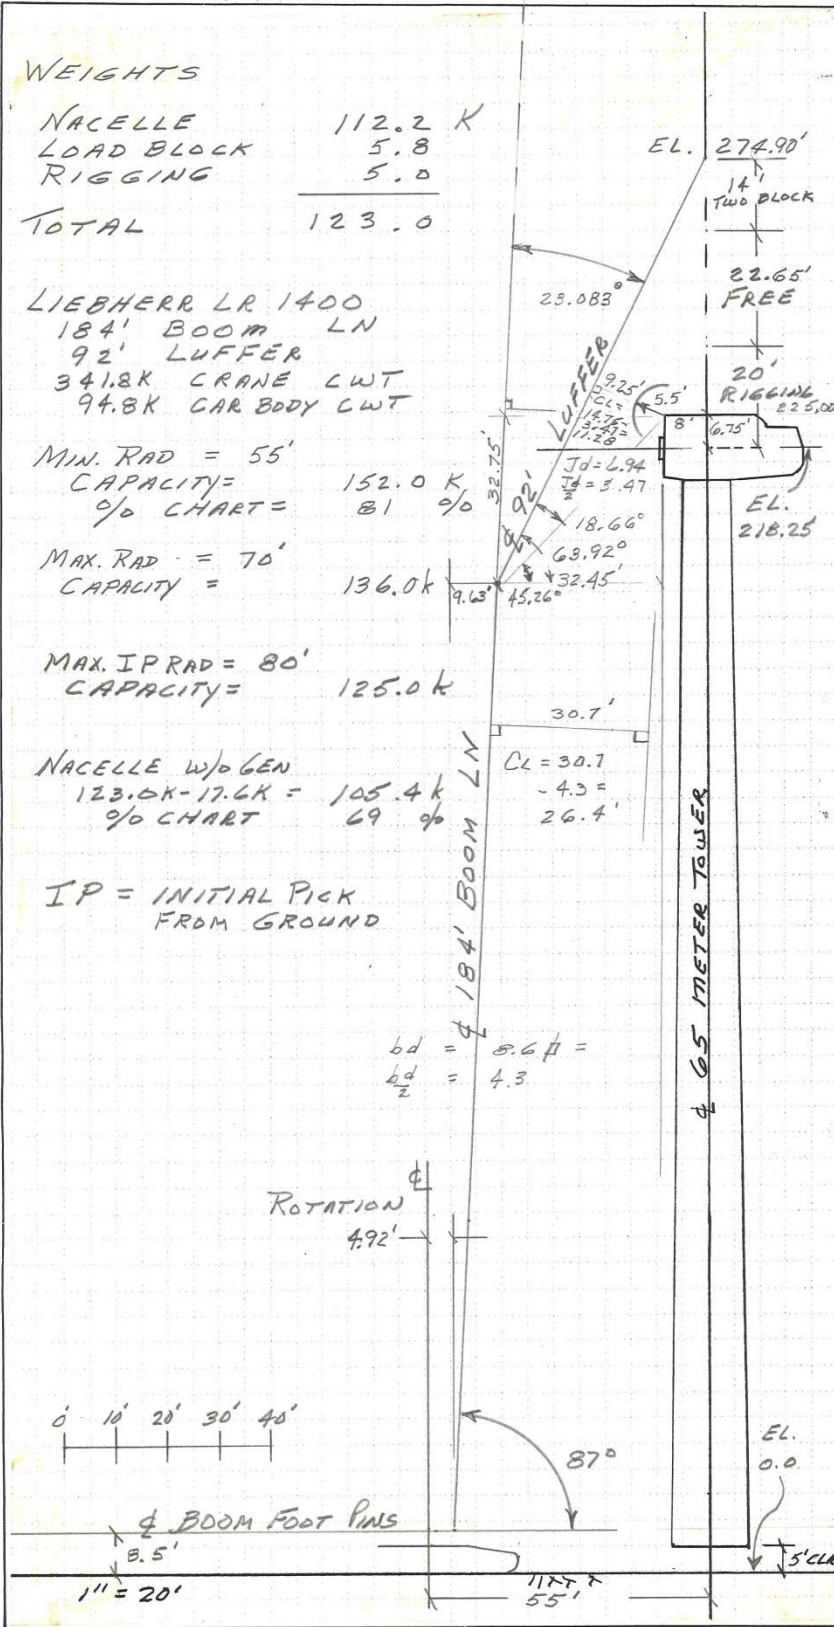 WEIGHTS
NACELLE 112.2 K
LOAD BLOCK 5.8
RIGGING 5.0
TOTAL 123.0
LIEBHERR LR 1400
184' BOOM LN
92' LUFFER
341.8K CRANE CWT
94.8K CAR BODY CWT
MIN. RAD = 55'
CAPACITY = 152.0 K
% CHART = 81 %
MAX. RAD = 70'
CAPACITY = 136.0k
MAX. IP RAD = 80'
CAPACITY = 125.0 k
NACELLE W/O GEN
123.0K-17.6K = 105.4 k
% CHART 69 %
IP = INITIAL PICK
FROM GROUND
EL. 274.90'
14'
TWO BLOCK
22.65'
FREE
20'
RIGGING
225.00
23.083°
LUFFER
℄ 92'
9.25'
CL =
14.75-
3.47=
11.28
5.5'
8'
6.75'
Jd = 6.94
Jd/2 = 3.47
EL.
218.25'
32.75'
18.66°
63.92°
32.45'
9.63'
45.26°
30.7'
CL = 30.7
- 4.3 =
26.4'
℄ 184' BOOM LN
℄ 65 METER TOWER
bd = 8.6 =
bd/2 = 4.3
℄
ROTATION
4.92'
0' 10' 20' 30' 40'
87°
EL.
0.0
℄ BOOM FOOT PINS
8.5'
5' CLR
1" = 20'
55'